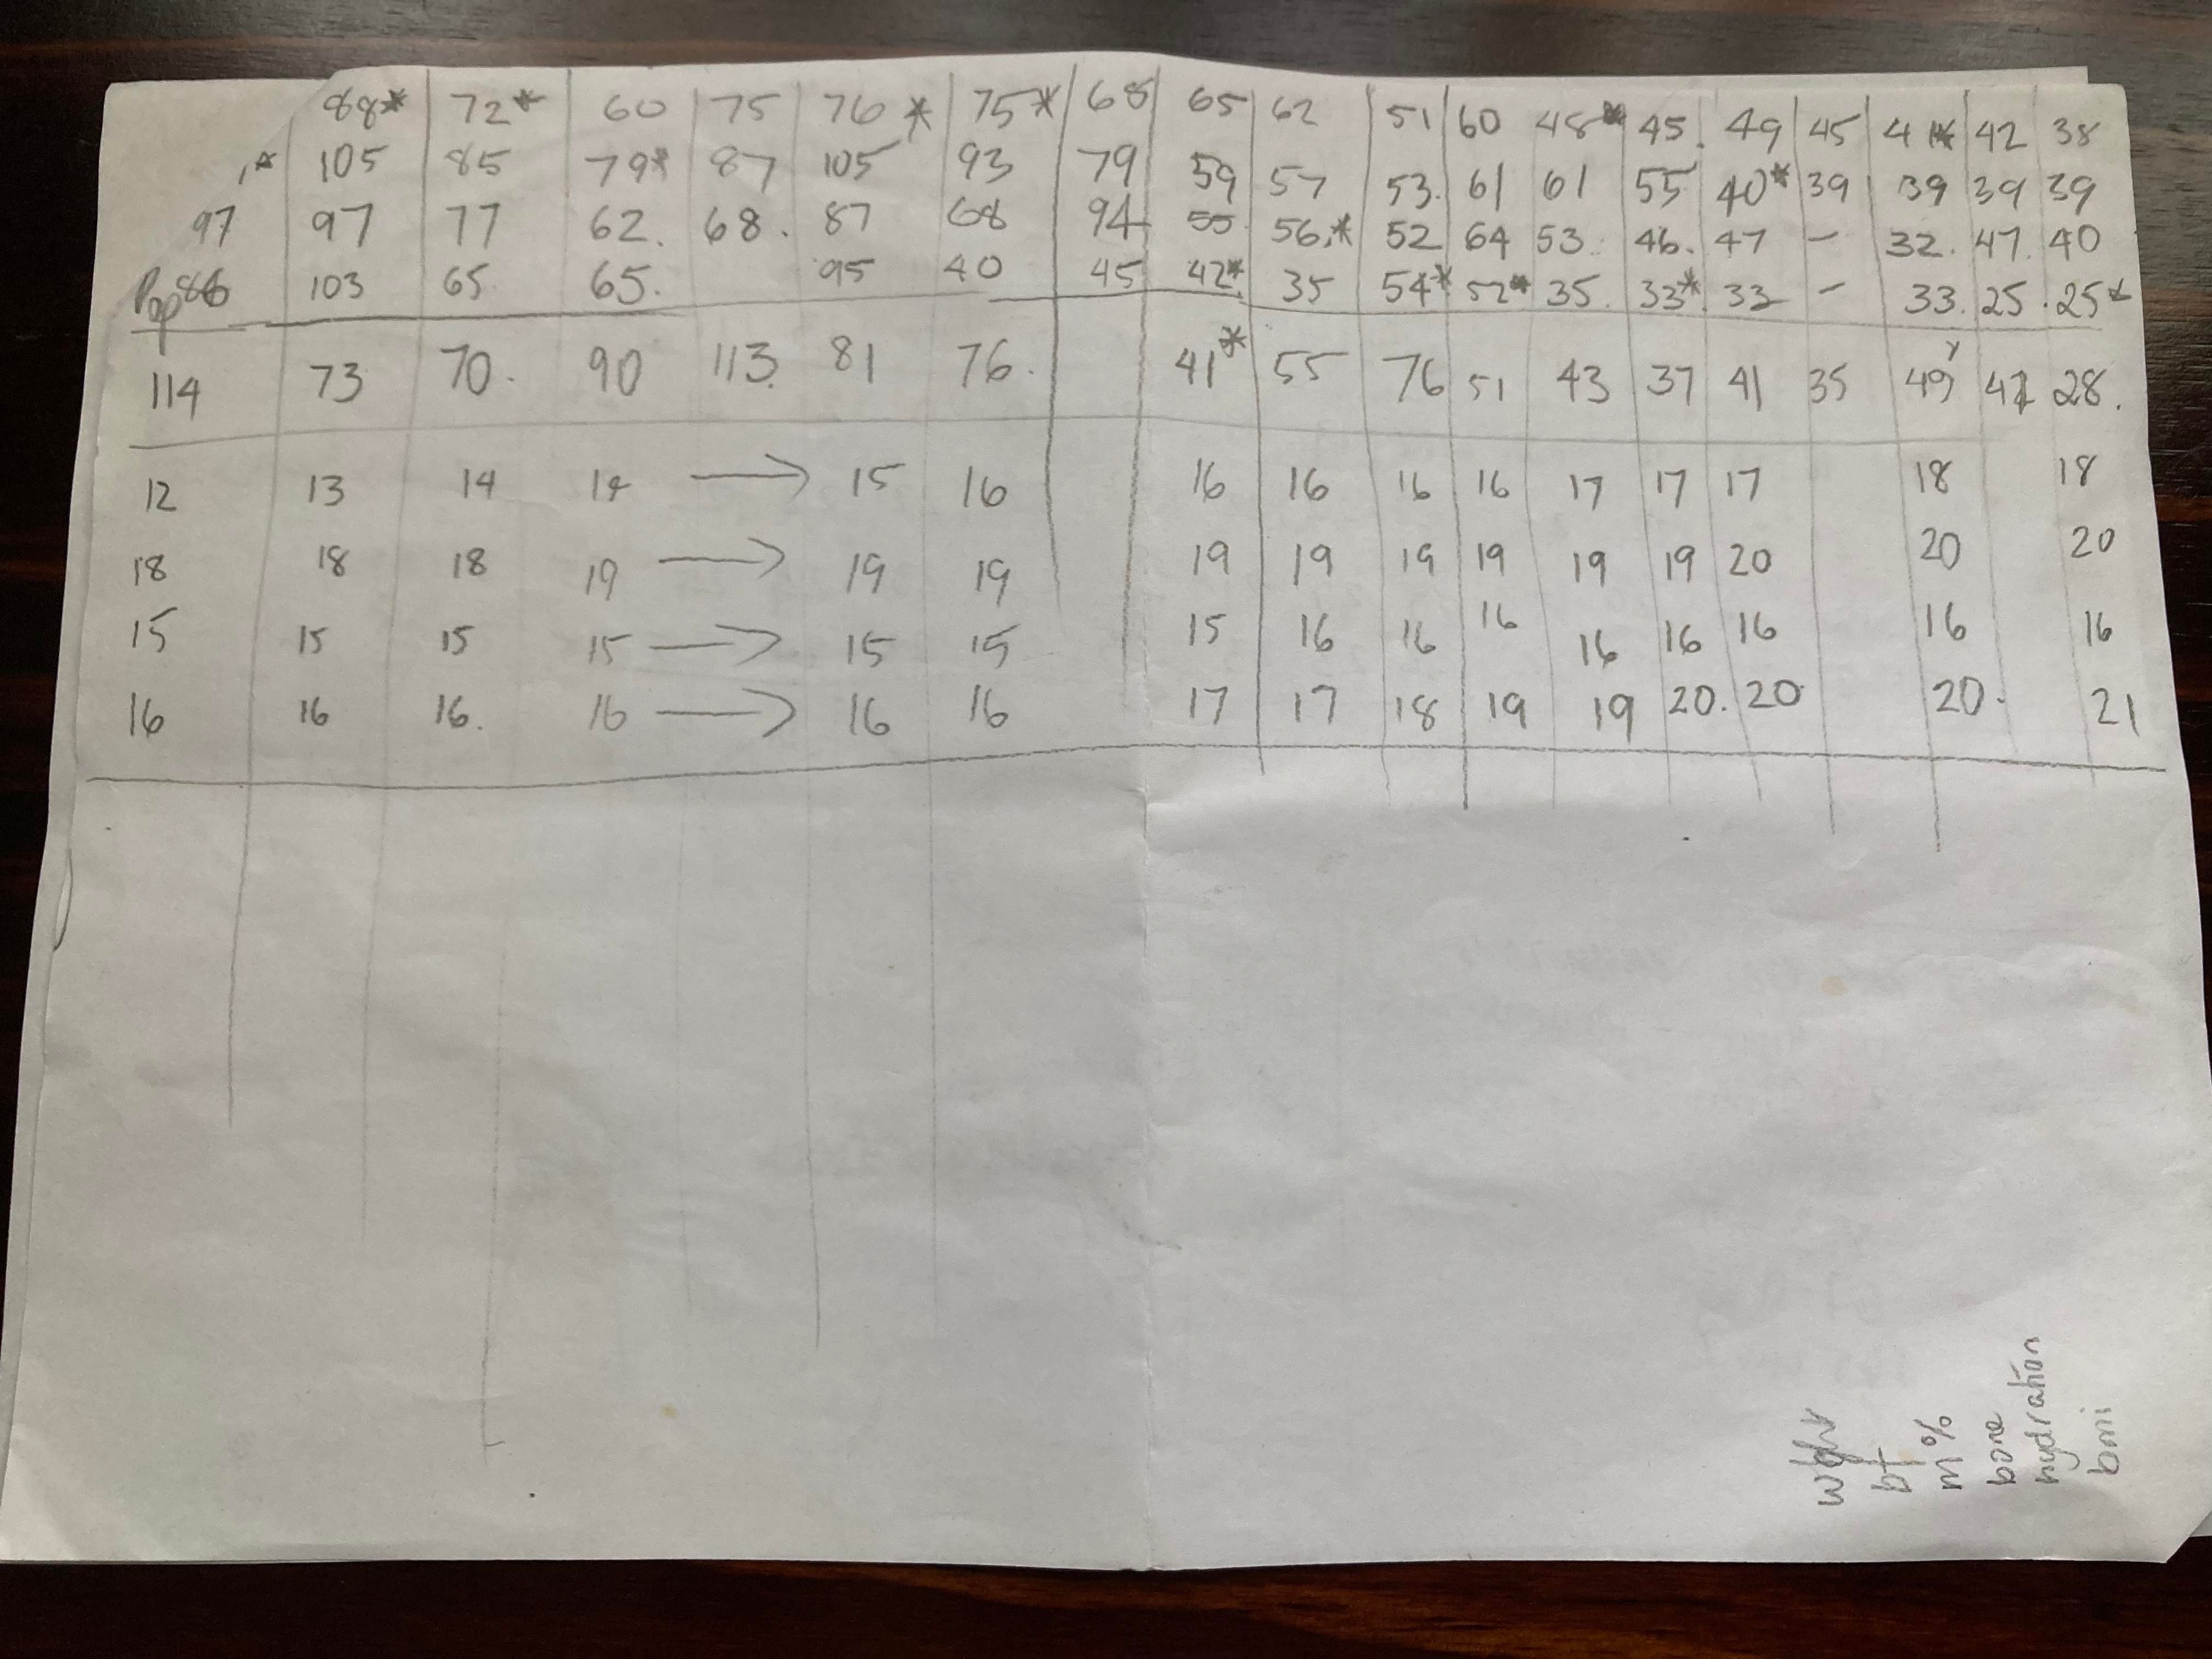 88* 72* 60 75 76* 75* 68 65 62 51 60 48* 45. 49 45 41* 42 38
105 85 79* 87 105 93 79 59 57 53. 61 61 55 40* 39 39 39 39
97 97 77 62. 68. 87 68 94 55 56.* 52 64 53. 46. 47 - 32. 47. 40
Pop86 103 65 65. 95 40 45 42* 35 54* 52* 35. 33* 33 - 33. 25. 25*
114 73 70. 90 113. 81 76. 41* 55 76 51 43 37 41 35 49 28.
12 13 14 14 → 15 16 16 16 16 16 17 17 17 18 18
18 18 18 19 → 19 19 19 19 19 19 19 19 20 20 20
15 15 15 15 → 15 15 15 16 16 16 16 16 16 16 16
16 16 16. 16 → 16 16 17 17 18 19 19 20. 20. 20. 21
bf
m%
bone
hydration
bmi